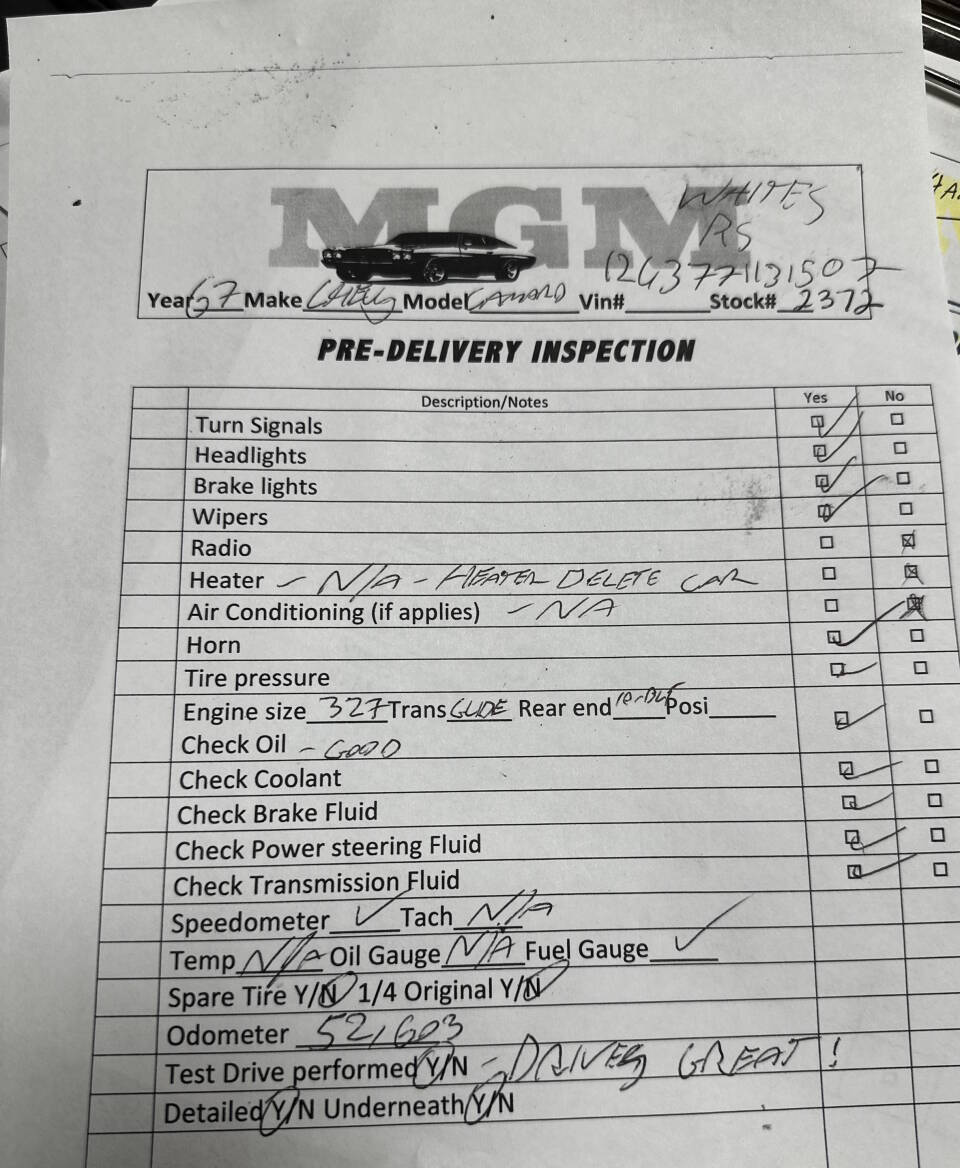 MGM
WHITES
RS
Year 67 Make CHEVY Model CAMARO Vin# Stock# 2372
PRE-DELIVERY INSPECTION
Description/Notes Yes No
Turn Signals
Headlights
Brake lights
Wipers
Radio
Heater - N/A - HEATER DELETE CAR
Air Conditioning (if applies) - NA
Horn
Tire pressure
Engine size 327 Trans GLIDE Rear end 10-BLT Posi
Check Oil - GOOD
Check Coolant
Check Brake Fluid
Check Power steering Fluid
Check Transmission Fluid
Speedometer ✓ Tach N/A
Temp N/A Oil Gauge N/A Fuel Gauge ✓
Spare Tire Y/N 1/4 Original Y/N
Odometer 52,603
Test Drive performed Y/N - DRIVES GREAT!
Detailed Y/N Underneath Y/N